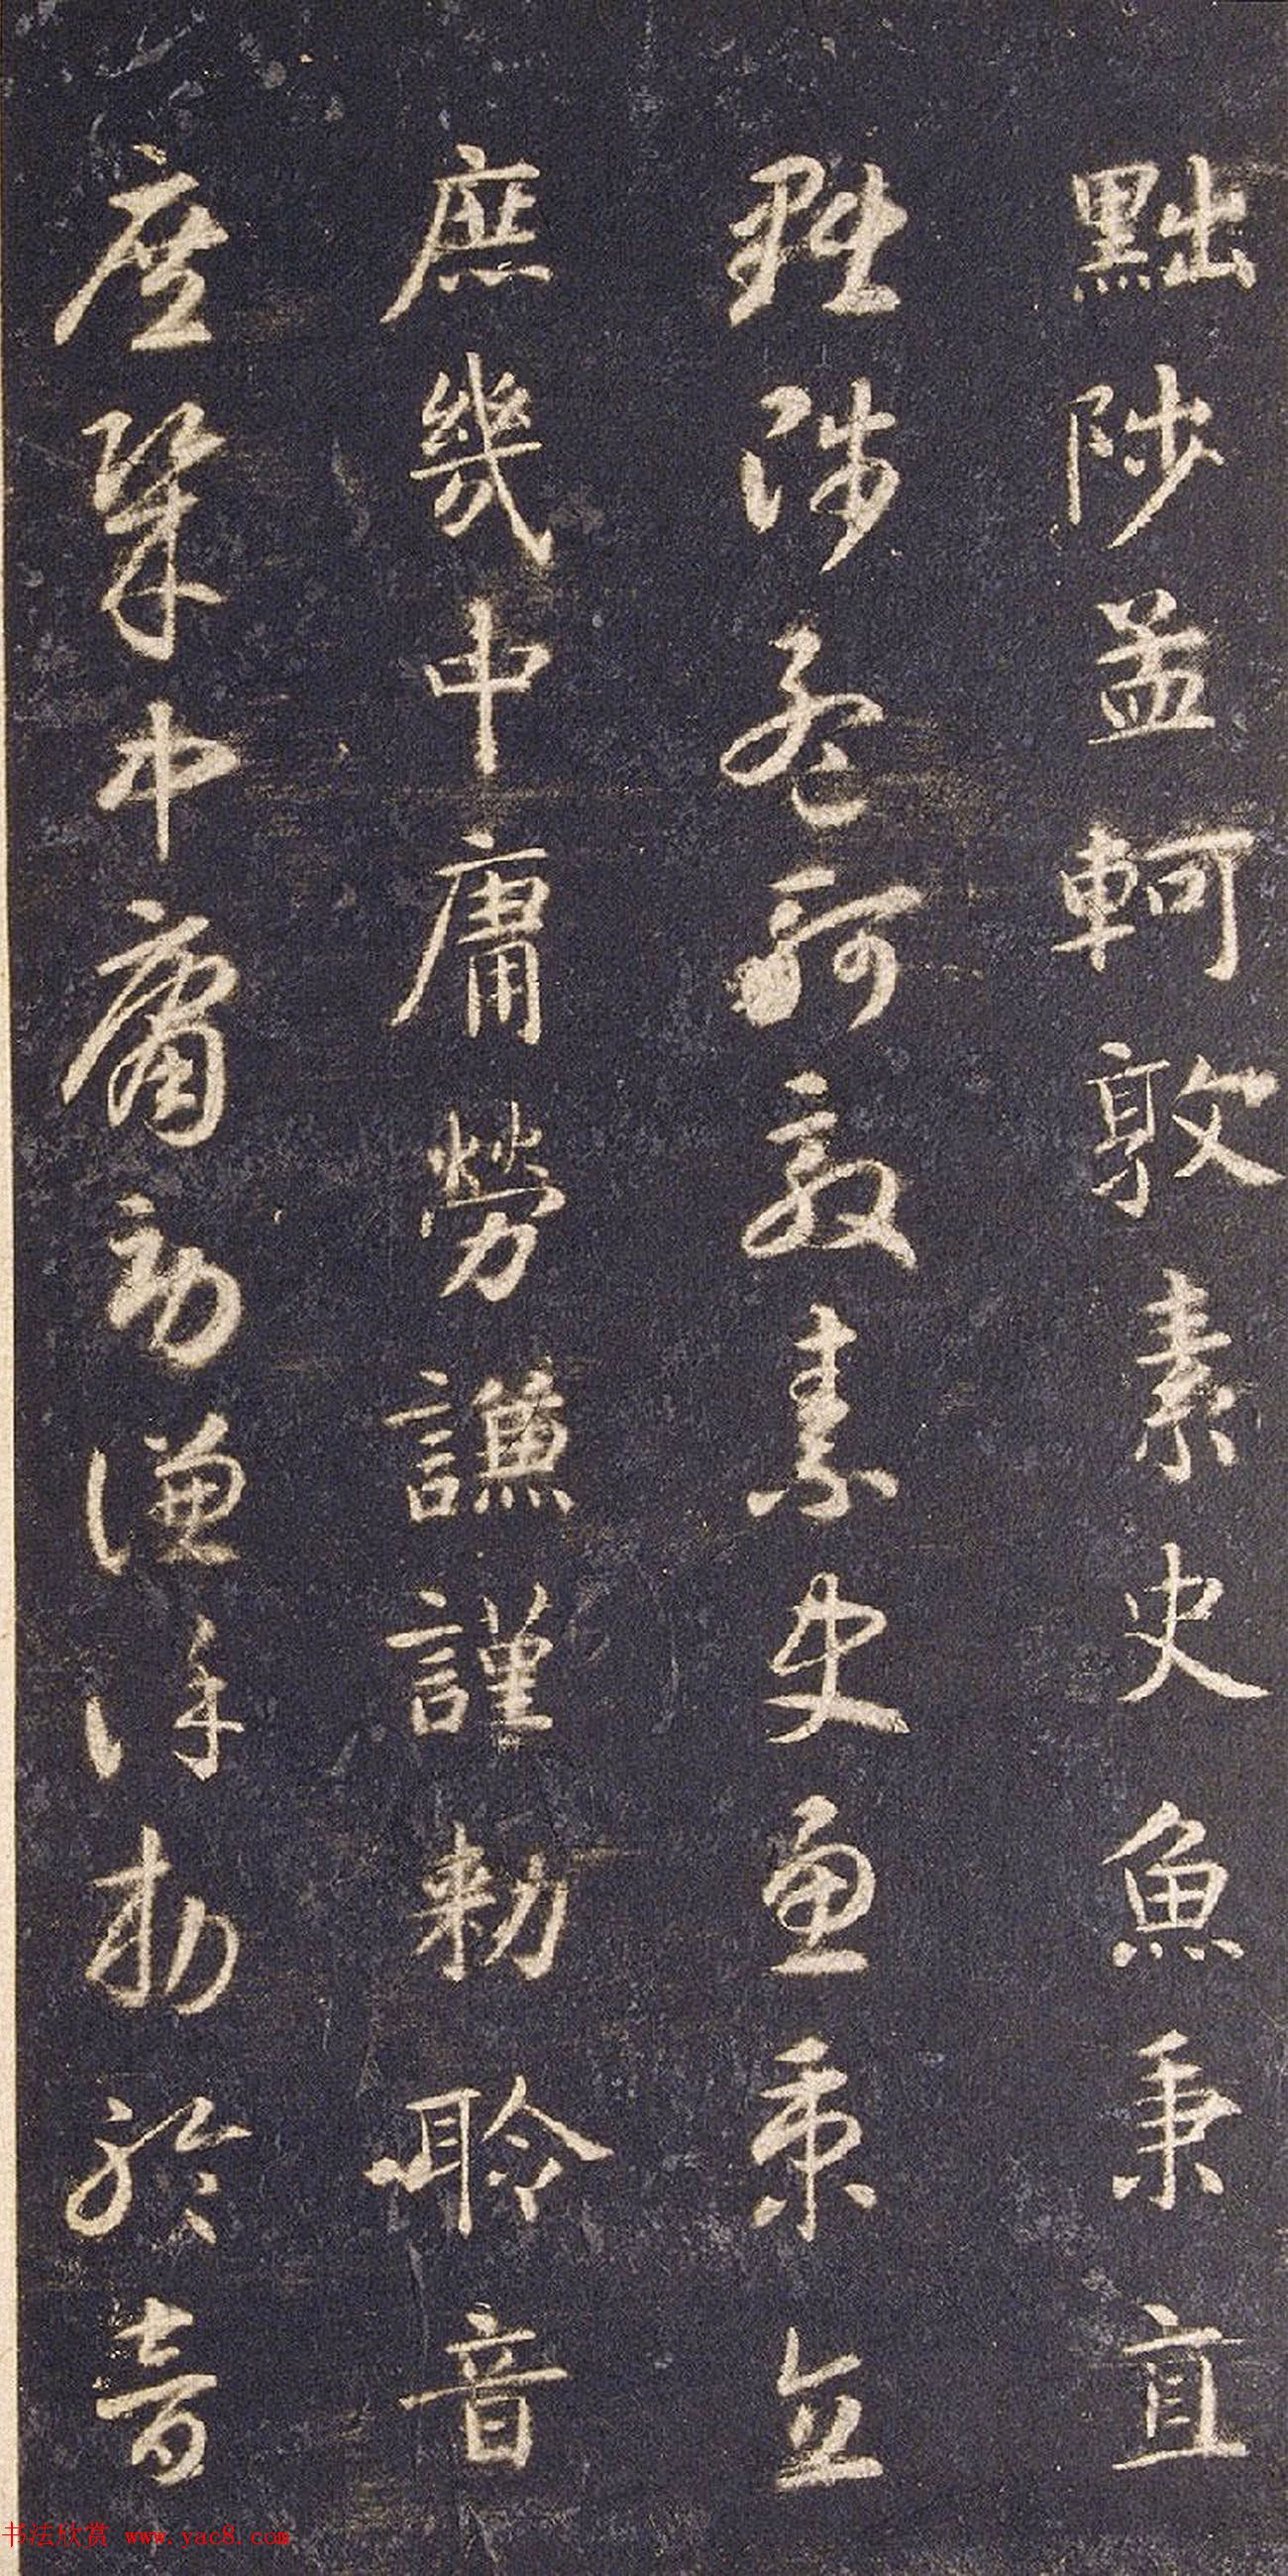 黜陟孟軻敦素史魚秉直
黜陟孟軻敦素史魚秉直
庶幾中庸勞謙謹敕聆音
庶幾中庸勞謙謹敕聆音
书法欣赏 www.yac8.com